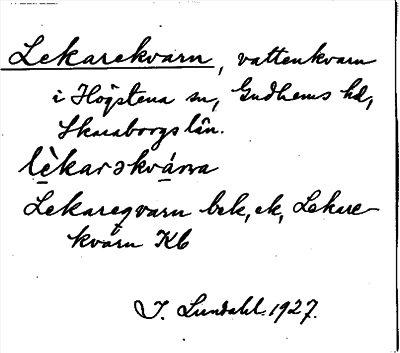 Lekarekvarn, vattenkvarn
i Högstena sn, Gudhems hd,
Skaraborgs län.
lè̱karəkvá̱rna
Lekareqvarn bek, ek, Lekare-
kvarn Kb
I. Lundahl. 1927.